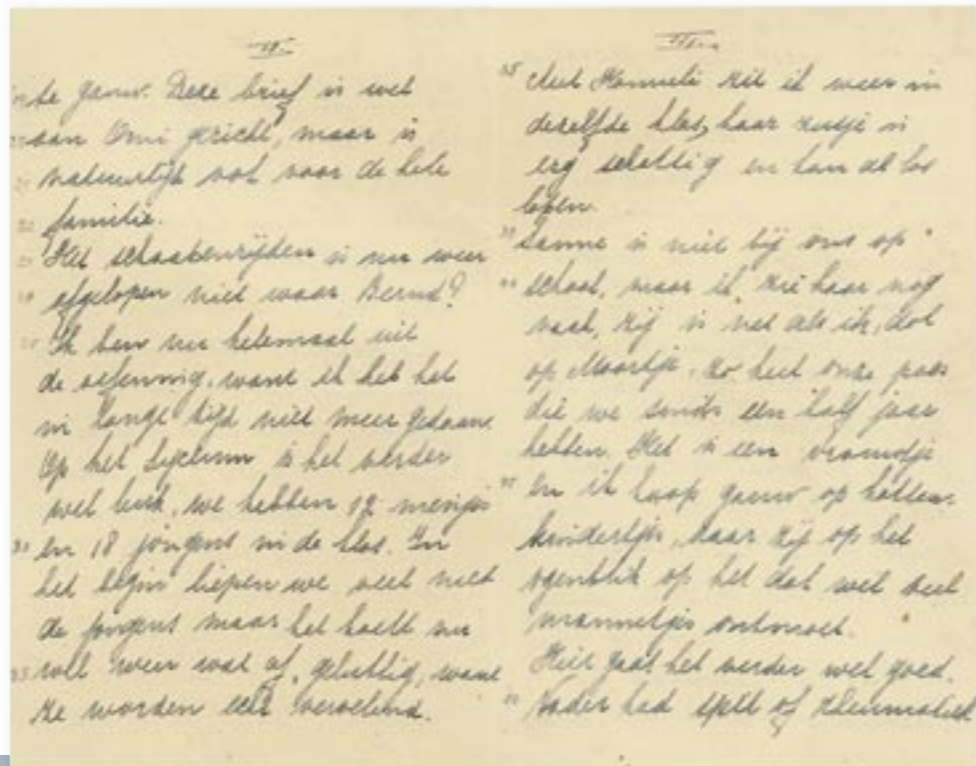 II.
te gauw. Deze brief is wel
aan Omi gericht, maar is
natuurlijk ook voor de hele
familie.
Het schaatsenrijden is nu weer
afgelopen niet waar Bernd?
Ik ben nu helemaal uit
de oefening, want ik heb het
in lange tijd niet meer gedaan.
Op het Lyceum is het verder
wel leuk, we hebben 12 meisjes
en 18 jongens in de klas. In
het begin liepen we veel met
de jongens maar het koelt nu
wel weer wat af, gelukkig, want
ze worden echt vervelend.
III.
Met Hanneli zit ik weer in
dezelfde klas, haar zusje is
erg schattig en kan al los
lopen.
Sanne is niet bij ons op
school, maar ik zie haar nog
vaak, zij is net als ik, dol
op Moortje, zo heet onze poes
die we sinds een half jaar
hebben. Het is een vrouwtje
en ik hoop gauw op katten-
kindertjes, daar zij op het
ogenblik op het dak wel veel
mannetjes ontmoet.
Hier gaat het verder wel goed.
Vader had spit of rheumatiek